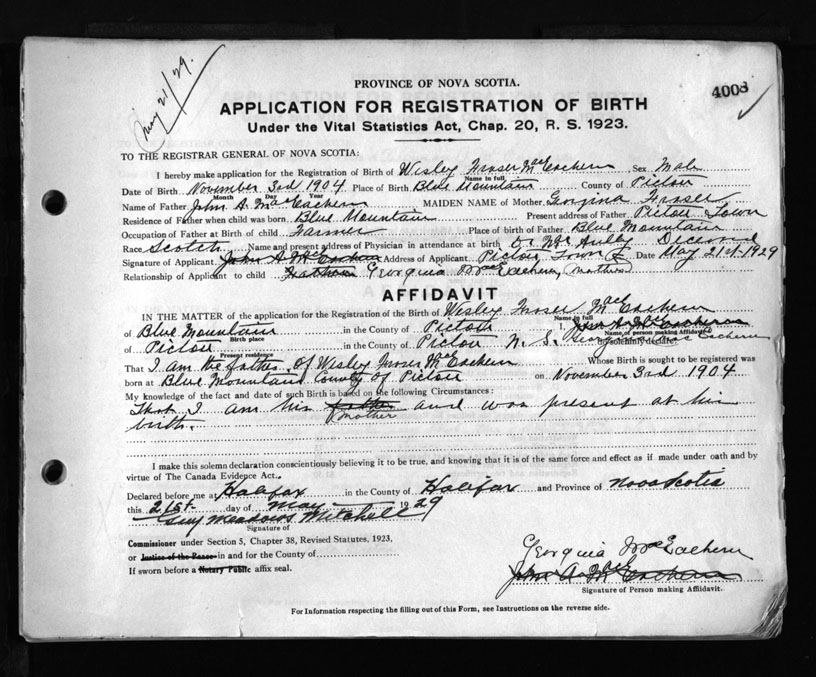 May 21/29.
4008
PROVINCE OF NOVA SCOTIA.
APPLICATION FOR REGISTRATION OF BIRTH
Under the Vital Statistics Act, Chap. 20, R. S. 1923.
TO THE REGISTRAR GENERAL OF NOVA SCOTIA:
I hereby make application for the Registration of Birth of Wesley Fraser MacEachern Sex Male
Name in full
Date of Birth November 3rd 1904 Place of Birth Blue Mountain County of Pictou
Month Day Year
Name of Father John A. MacEachern MAIDEN NAME of Mother Georgina Fraser
Residence of Father when child was born Blue Mountain Present address of Father Pictou Town
Occupation of Father at Birth of child Farmer Place of birth of Father Blue Mountain
Race Scotch Name and present address of Physician in attendance at birth Dr.
Signature of Applicant John A. McEachern Address of Applicant Pictou Town Date May 21st 1929
Relationship of Applicant to child Father Georgina MacEachern, (Mother)
AFFIDAVIT
IN THE MATTER of the application for the Registration of the Birth of Wesley Fraser MacEachern
Name in full
of Blue Mountain in the County of Pictou I, John A. MacEachern
Birth place Name of person making Affidavit
of Pictou in the County of Pictou N. S. do solemnly declare
Present residence
That I am the father of Wesley Fraser MacEachern Whose Birth is sought to be registered was
born at Blue Mountain County of Pictou on November 3rd 1904
My knowledge of the fact and date of such Birth is based on the following Circumstances:
That I am his father and was present at his
mother
birth.
I make this solemn declaration conscientiously believing it to be true, and knowing that it is of the same force and effect as if made under oath and by
virtue of The Canada Evidence Act.
Declared before me at Halifax in the County of Halifax and Province of Nova Scotia
this 21st day of May 1929
Guy Meadows Mitchell
Signature of
Commissioner under Section 5, Chapter 38, Revised Statutes, 1923,
or Justice of the Peace in and for the County of
If sworn before a Notary Public affix seal.
Georgina MacEachern
John A. MacEachern
Signature of Person making Affidavit.
For Information respecting the filling out of this Form, see Instructions on the reverse side.